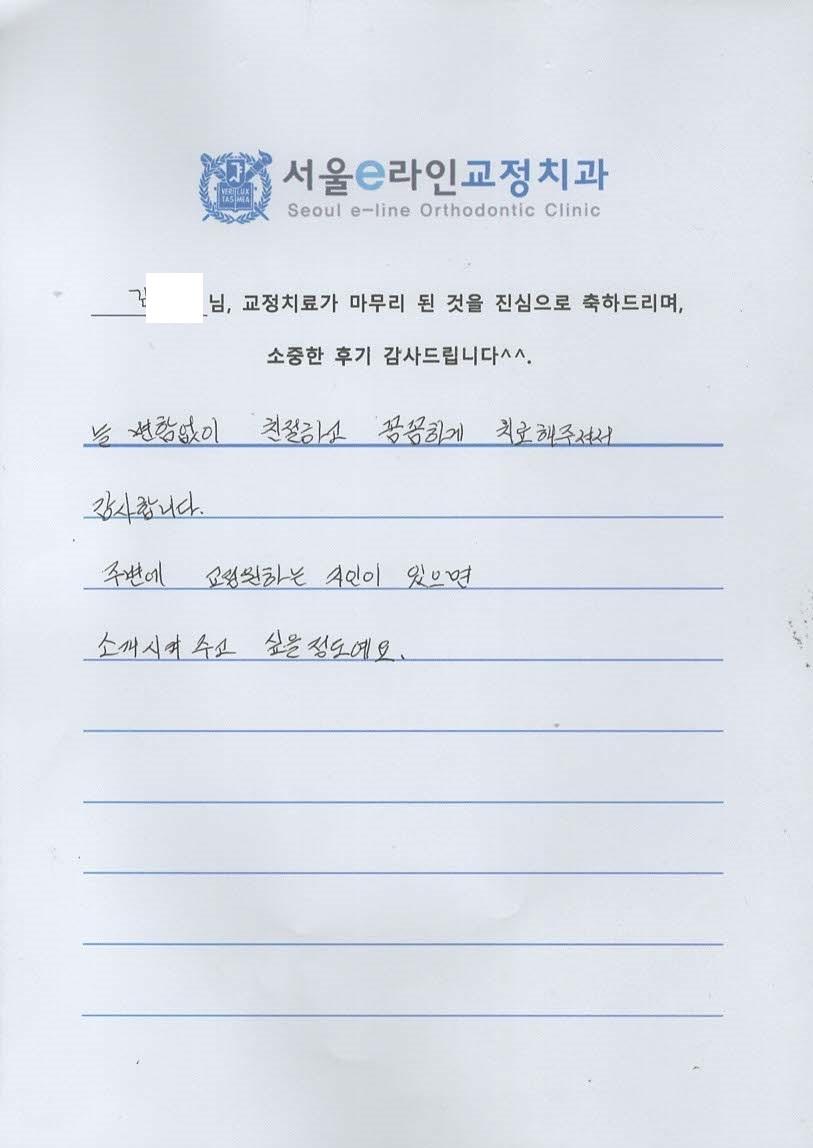 서울e라인교정치과
Seoul e-line Orthodontic Clinic
VERI LUX
TAS MEA
김 님, 교정치료가 마무리 된 것을 진심으로 축하드리며,
소중한 후기 감사드립니다^^.
늘 변함없이 친절하고 꼼꼼하게 치료해주셔서
감사합니다.
주변에 교정원하는 지인이 있으면
소개시켜 주고 싶을정도예요.